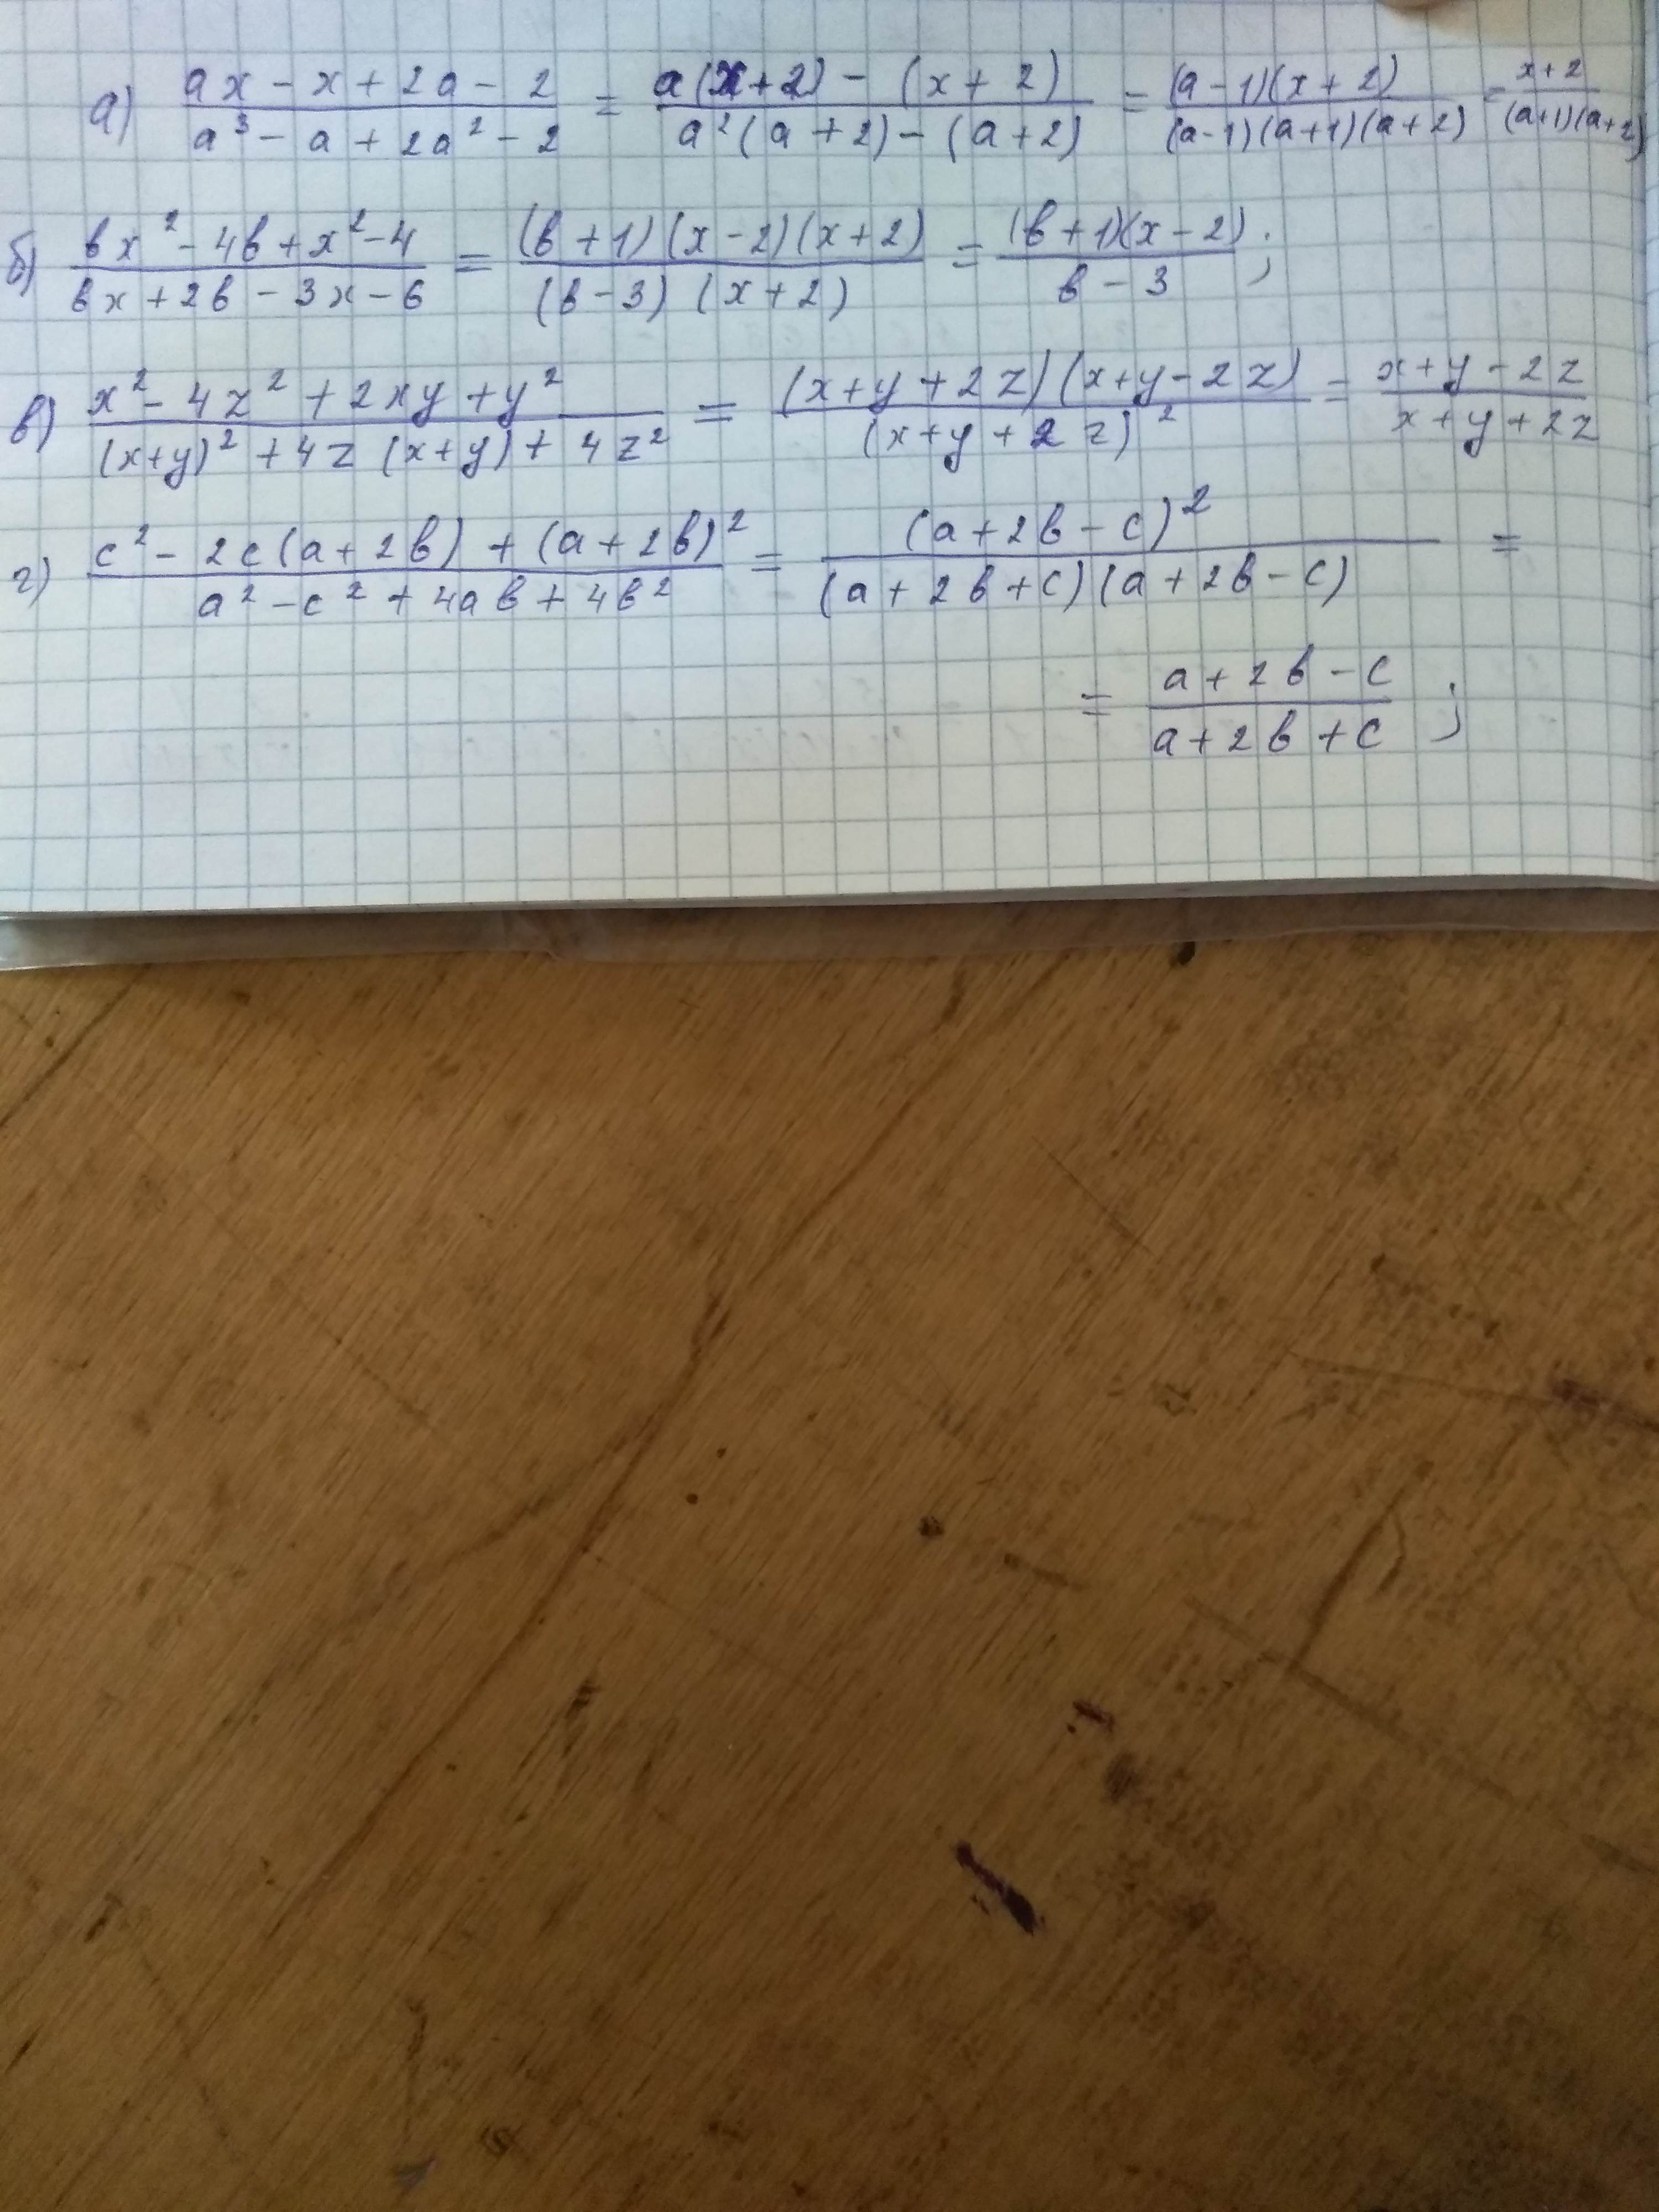 а) (ax - x + 2a - 2)/(a³ - a + 2a² - 2) = (a(x+2) - (x+2))/(a²(a+2) - (a+2)) = ((a-1)(x+2))/((a-1)(a+1)(a+2)) = (x+2)/((a+1)(a+2))
б) (bx² - 4b + x² - 4)/(bx + 2b - 3x - 6) = ((b+1)(x-2)(x+2))/((b-3)(x+2)) = ((b+1)(x-2))/(b-3);
в) (x² - 4z² + 2xy + y²)/((x+y)² + 4z(x+y) + 4z²) = ((x+y+2z)(x+y-2z))/((x+y+2z)²) = (x+y-2z)/(x+y+2z)
г) (c² - 2c(a+2b) + (a+2b)²)/(a² - c² + 4ab + 4b²) = ((a+2b-c)²)/((a+2b+c)(a+2b-c)) =
= (a+2b-c)/(a+2b+c);